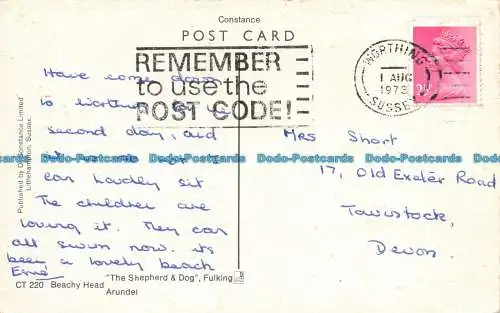 Constance
POST CARD
REMEMBER
to use the
POST CODE!
WORTHING
1 AUG
1973
SUSSEX
Have come down
to Worthing for
second day, and
it's so hot I
can hardly sit
The children are
loving it. They can
all swim now. its
been a lovely beach
Esme
Mrs Short
17, Old Exeter Road
Tavistock,
Devon.
Published by D. Constance Limited
Littlehampton, Sussex.
"The Shepherd & Dog", Fulking
CT 220 Beachy Head
Arundel
Dodo-Postcards Dodo-Postcards Dodo-Postcards Dodo-Postcards Dodo-Postcards